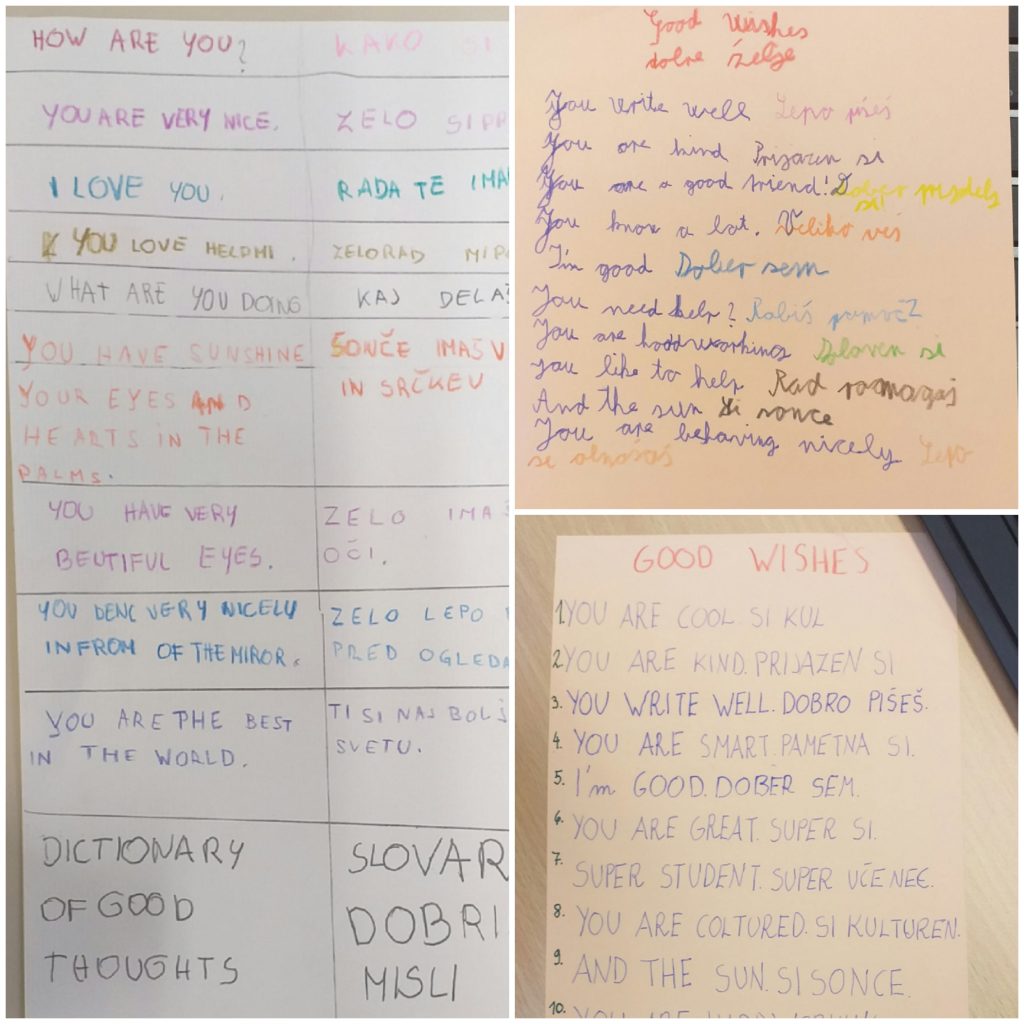 HOW ARE YOU? KAKO SI
YOU ARE VERY NICE. ZELO SI PR
I LOVE YOU. RADA TE IMA
YOU LOVE HELPMI. ZELORAD MI PO
WHAT ARE YOU DOING KAJ DELAŠ
YOU HAVE SUNSHINE SONČE IMAŠ V
YOUR EYES AND IN SRČKEV
HEARTS IN THE
PALMS.
YOU HAVE VERY ZELO IMA
BEUTIFUL EYES. OČI.
YOU DENC VERY NICELU ZELO LEPO
IN FROM OF THE MIROR. PRED OGLEDA
YOU ARE PHE BEST TI SI NAJ BOLJŠ
IN THE WORLD. SVETU.
DICTIONARY SLOVAR
OF GOOD DOBRI
THOUGHTS MISLI
Good Wishes
dobre želje
You write well Lepo pišeš
You are kind Prijazen si
You are a good friend! Dober
si
You know a lot. Veliko veš
I'm good Dober sem
You need help? Rabiš pomoč?
You are Sloven si
you like to help Rad pomagaš
And the sun si sonce
You are behaving nicely Lepo
se obnašaš
GOOD WISHES
1. YOU ARE COOL. SI KUL
2. YOU ARE KIND. PRIJAZEN SI
3. YOU WRITE WELL. DOBRO PIŠEŠ.
4. YOU ARE SMART. PAMETNA SI.
5. I'm GOOD. DOBER SEM.
6. YOU ARE GREAT. SUPER SI.
7. SUPER STUDENT. SUPER UČENEC.
8. YOU ARE COLTURED. SI KULTUREN.
9. AND THE SUN. SI SONCE.
10. YOU ARE